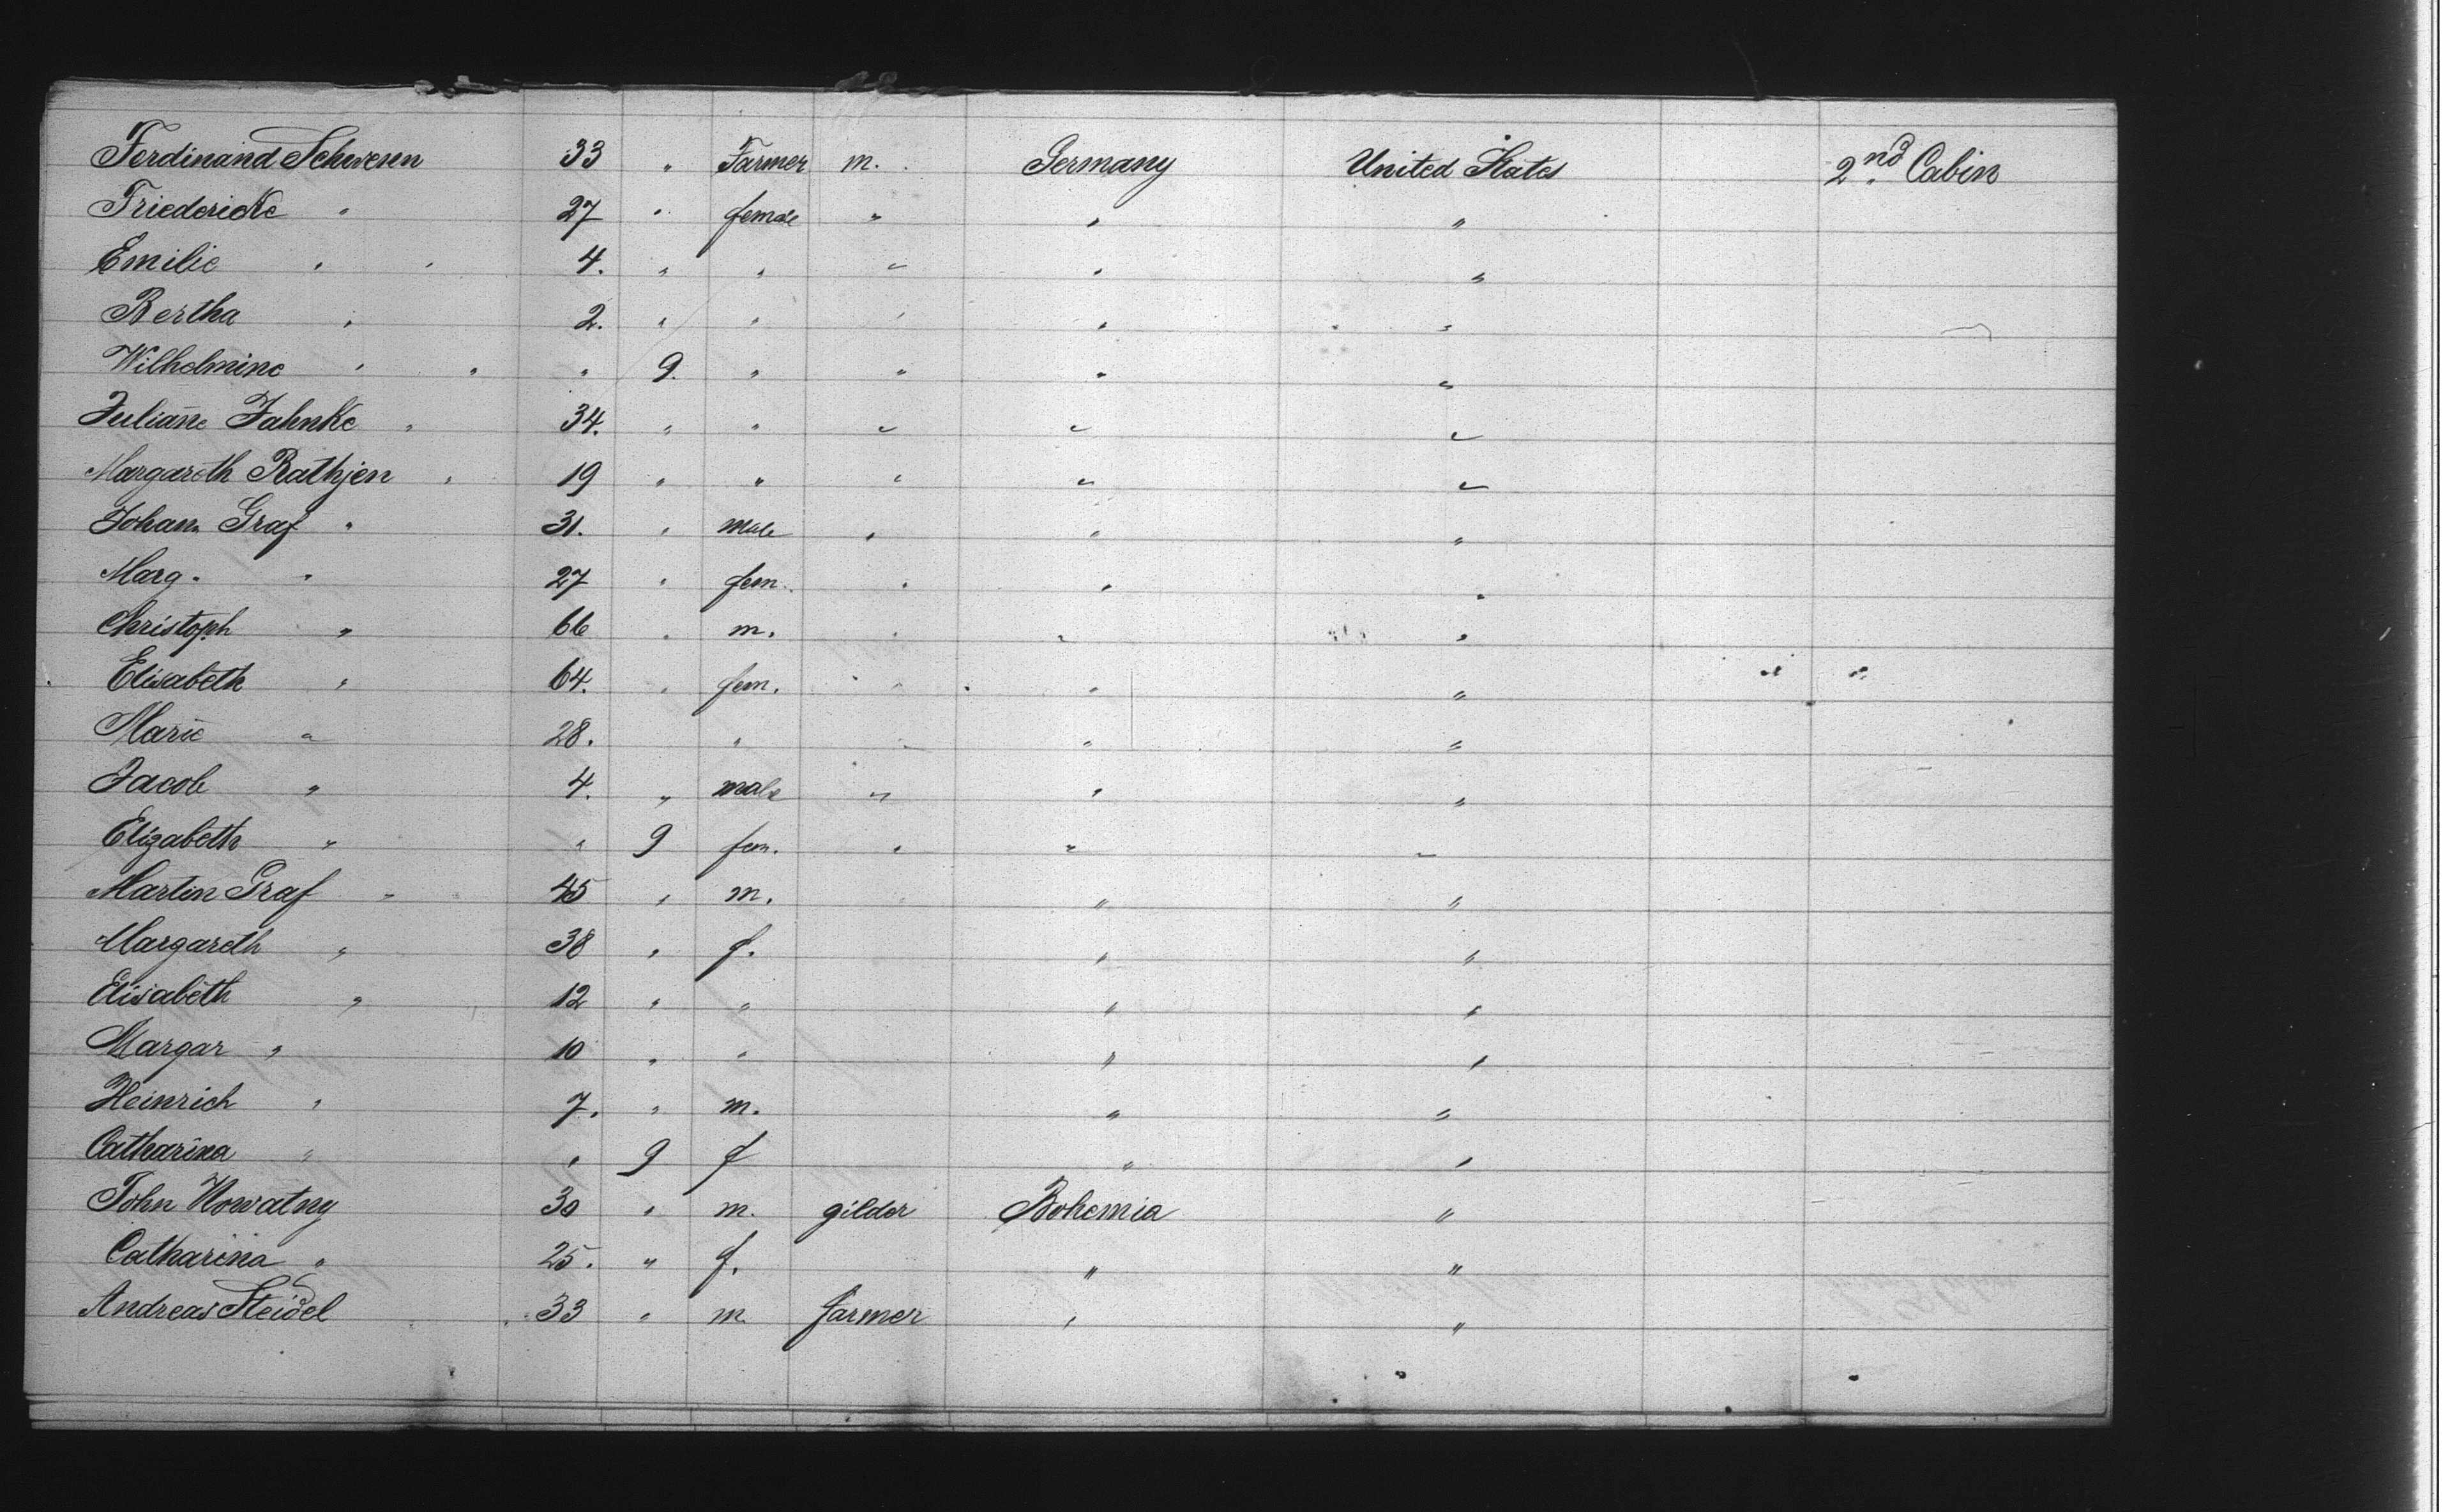 Ferdinand Schwenn 33 " Farmer m. Germany United States 2nd Cabin
Friedericke " 27 " female " " "
Emilie " " 4. " " " " "
Bertha " 2. " " " " "
Wilhelmine " " " 9. " " " "
Juliane Jahnke " 34. " " " " "
Margareth Rathjen " 19 " " " " "
Johann Graf " 31. " male " " "
Marg. " 27 " fem. " " "
Christoph " 66 " m. " " "
Elisabeth " 64. " fem. " " "
Marie " 28. " " " "
Jacob " 4. " male " " "
Elizabeth " " 9 fem. " " "
Martin Graf " 45 " m. " "
Margareth " 38 " f. " "
Elisabeth " 12 " " " "
Margar " 10 " " " "
Heinrich " 7. " m. " "
Catharina " " 9 f " "
John Nowatny 30 " m. gilder Bohemia "
Catharina " 25. " f. " "
Andreas Steidel 33 " m. farmer " "